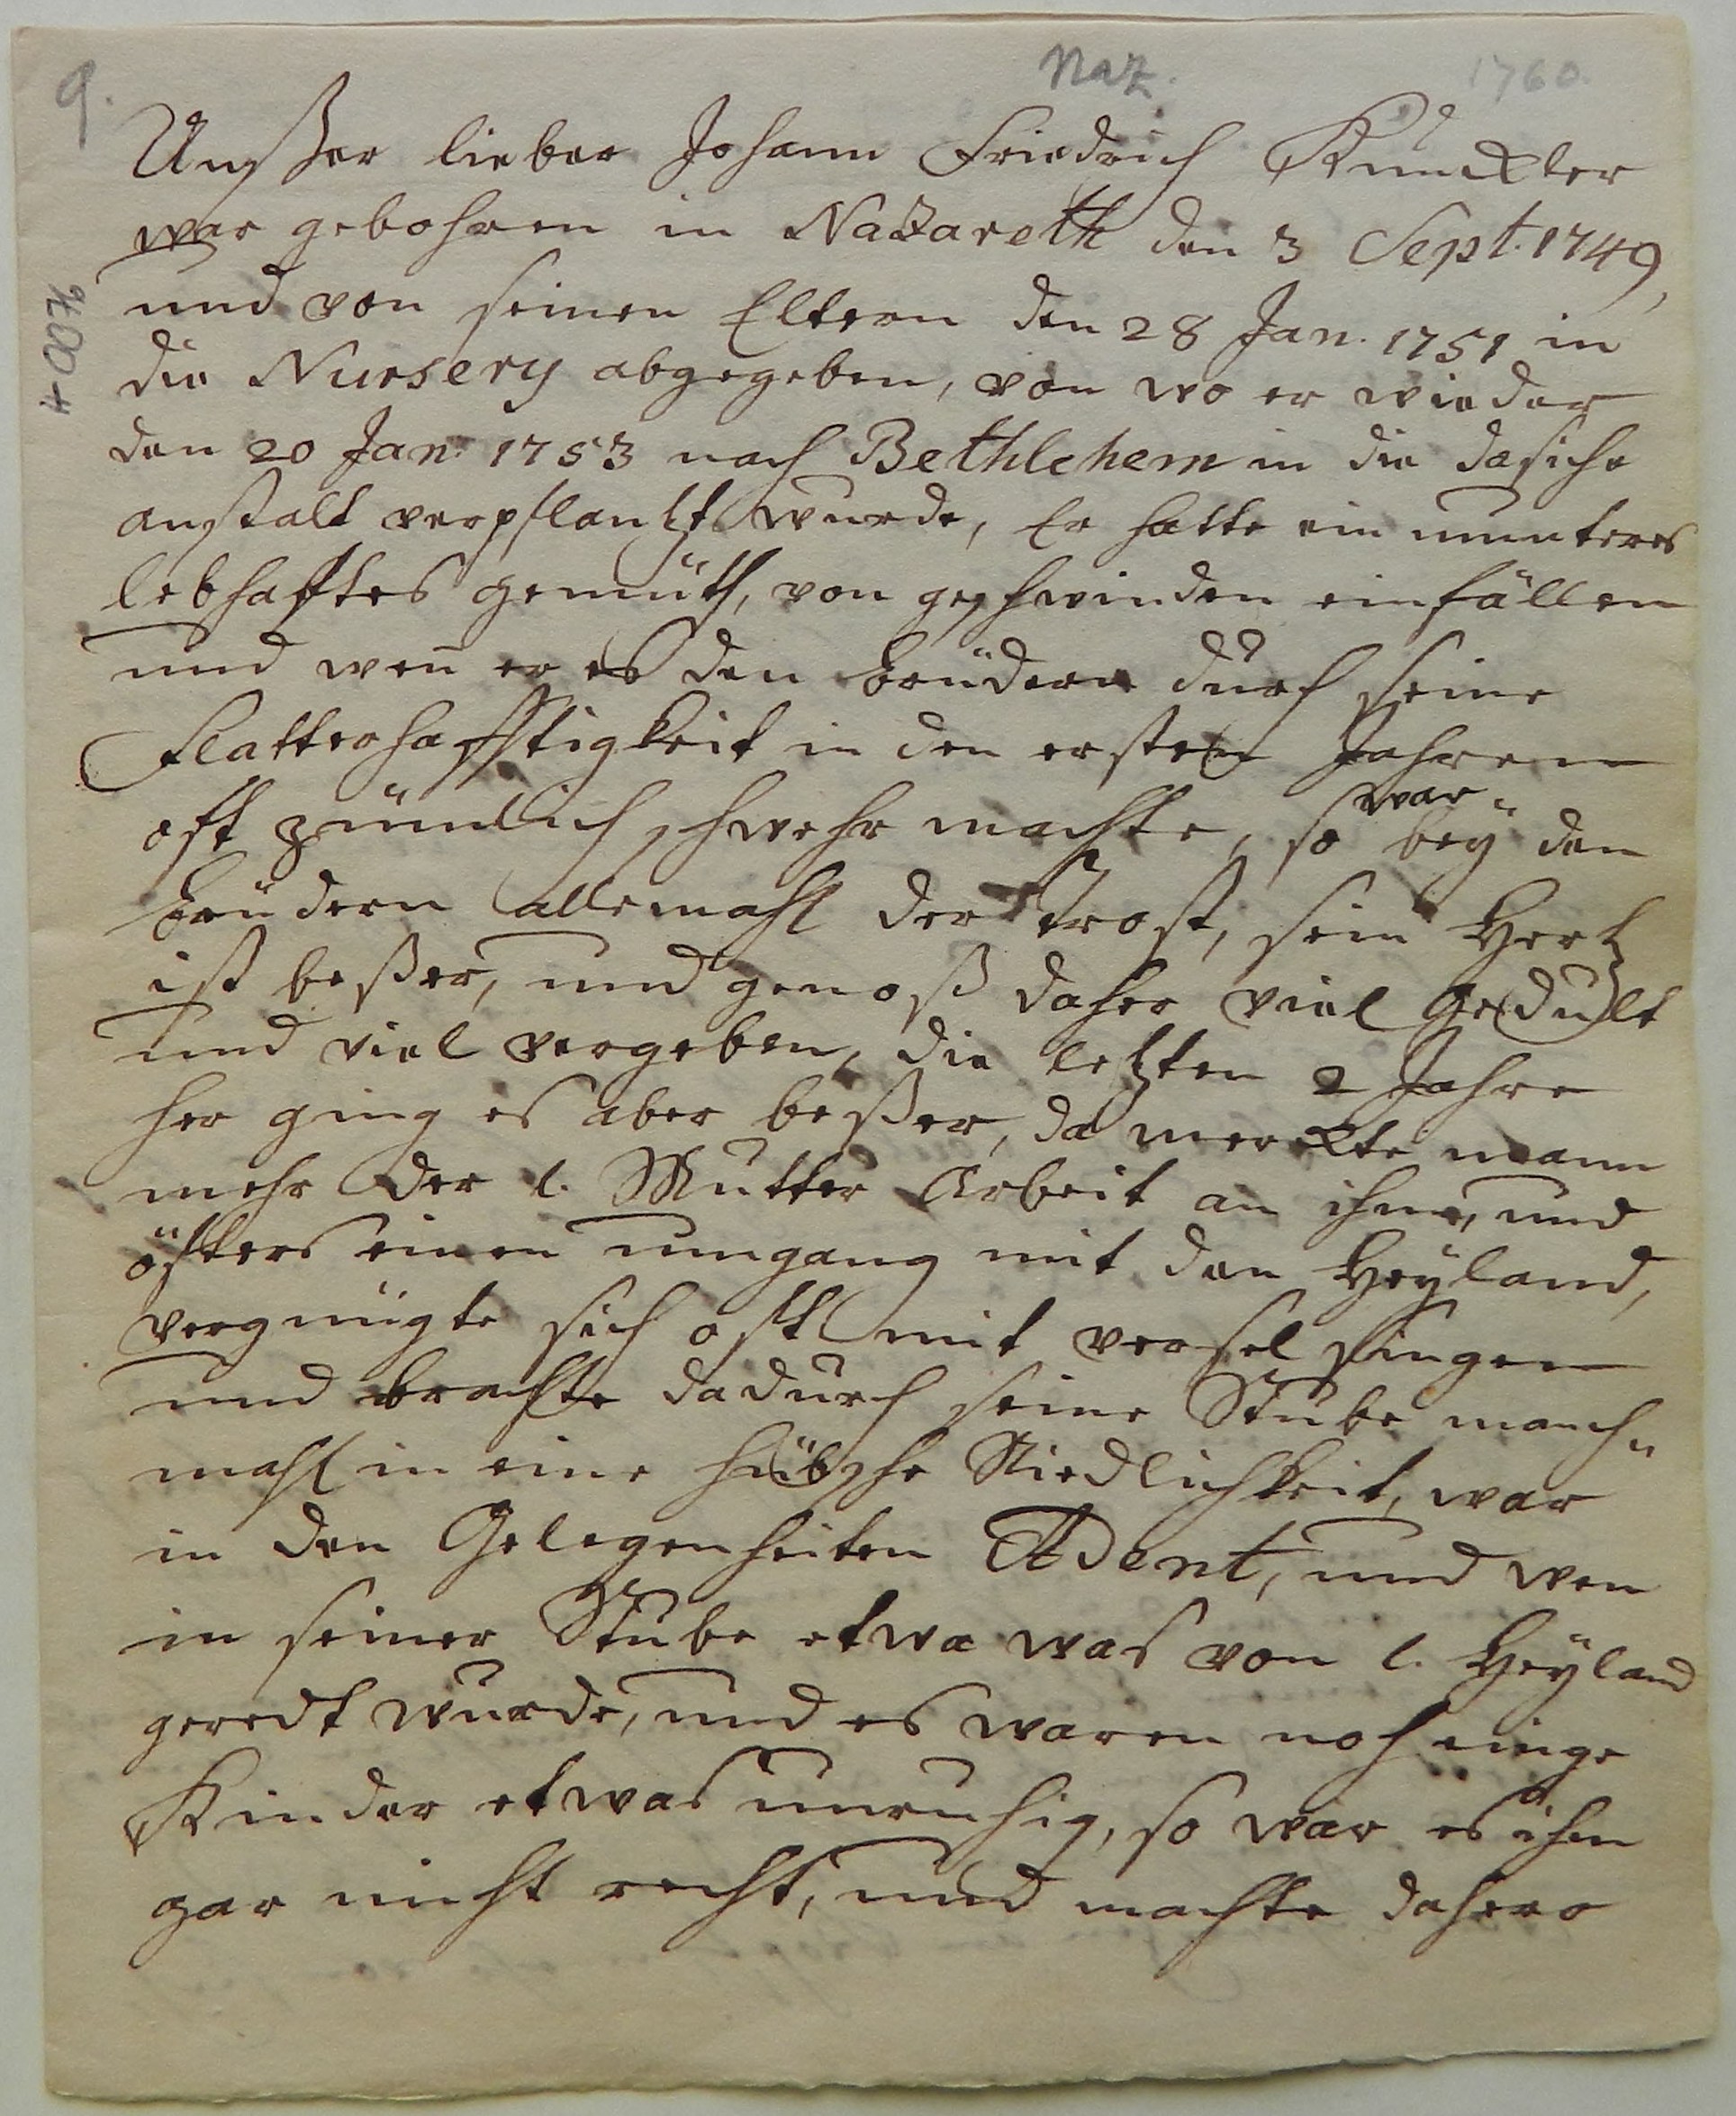 9.
Naz.
1760.
4007b
Unßer lieber Johann Friedrich Kunckler
war gebohren in Nazareth den 3 Sept. 1749,
und von seinen Eltern den 28 Jan. 1751 in
die Nursery abgegeben, von wo er wieder
den 20 Jan. 1753 nach Bethlehem in die dasiche
anstalt verpflantzt wurde, Er hatte ein munteres
lebhafftes gemüth, von geschwinden einfällen
und wen̄ er es den brüdern durch seine
flatterhafftigkeit in den ersten Jahren
oft zimlich schwehr machte, so war bey den
brüdern allemahl der trost, sein Hertz
ist beßer, und genoß daher viel gedult
und viel vergeben, die letzten 2 Jahre
her ging es aber beßer, da merckte mann
mehr der l. Mutter Arbeit an ihm, und
öfters einen umgang mit den Heyland,
vergnügte sich oft mit versel singen
und brachte dadurch seine Stube manch-
mahl in eine hübsche Niedlichkeit, war
in den Gelegenheiten Adent, und wen
in seiner Stube etwa was von l. Heyland
geredt wurde, und es waren noch einge
Kinder etwas unruhig, so war es ihm
gar nicht recht, und machte dahero